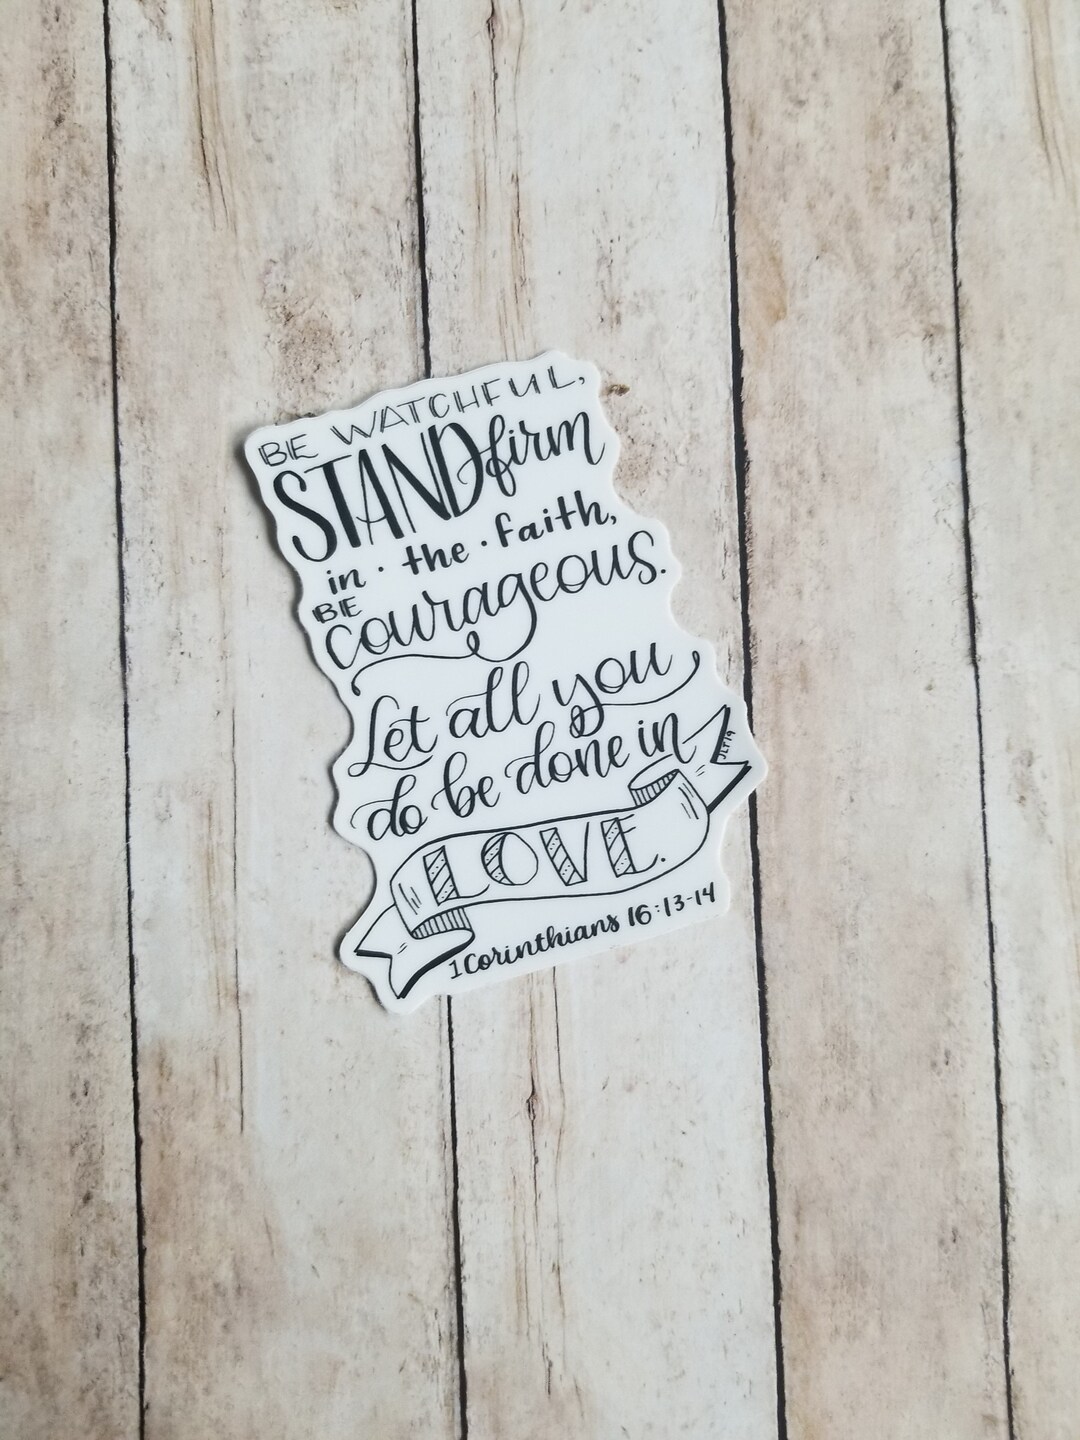 BE WATCHFUL,
STAND firm
in · the · faith,
BE
courageous.
Let all you
do be done in
LOVE.
1 Corinthians 16:13-14